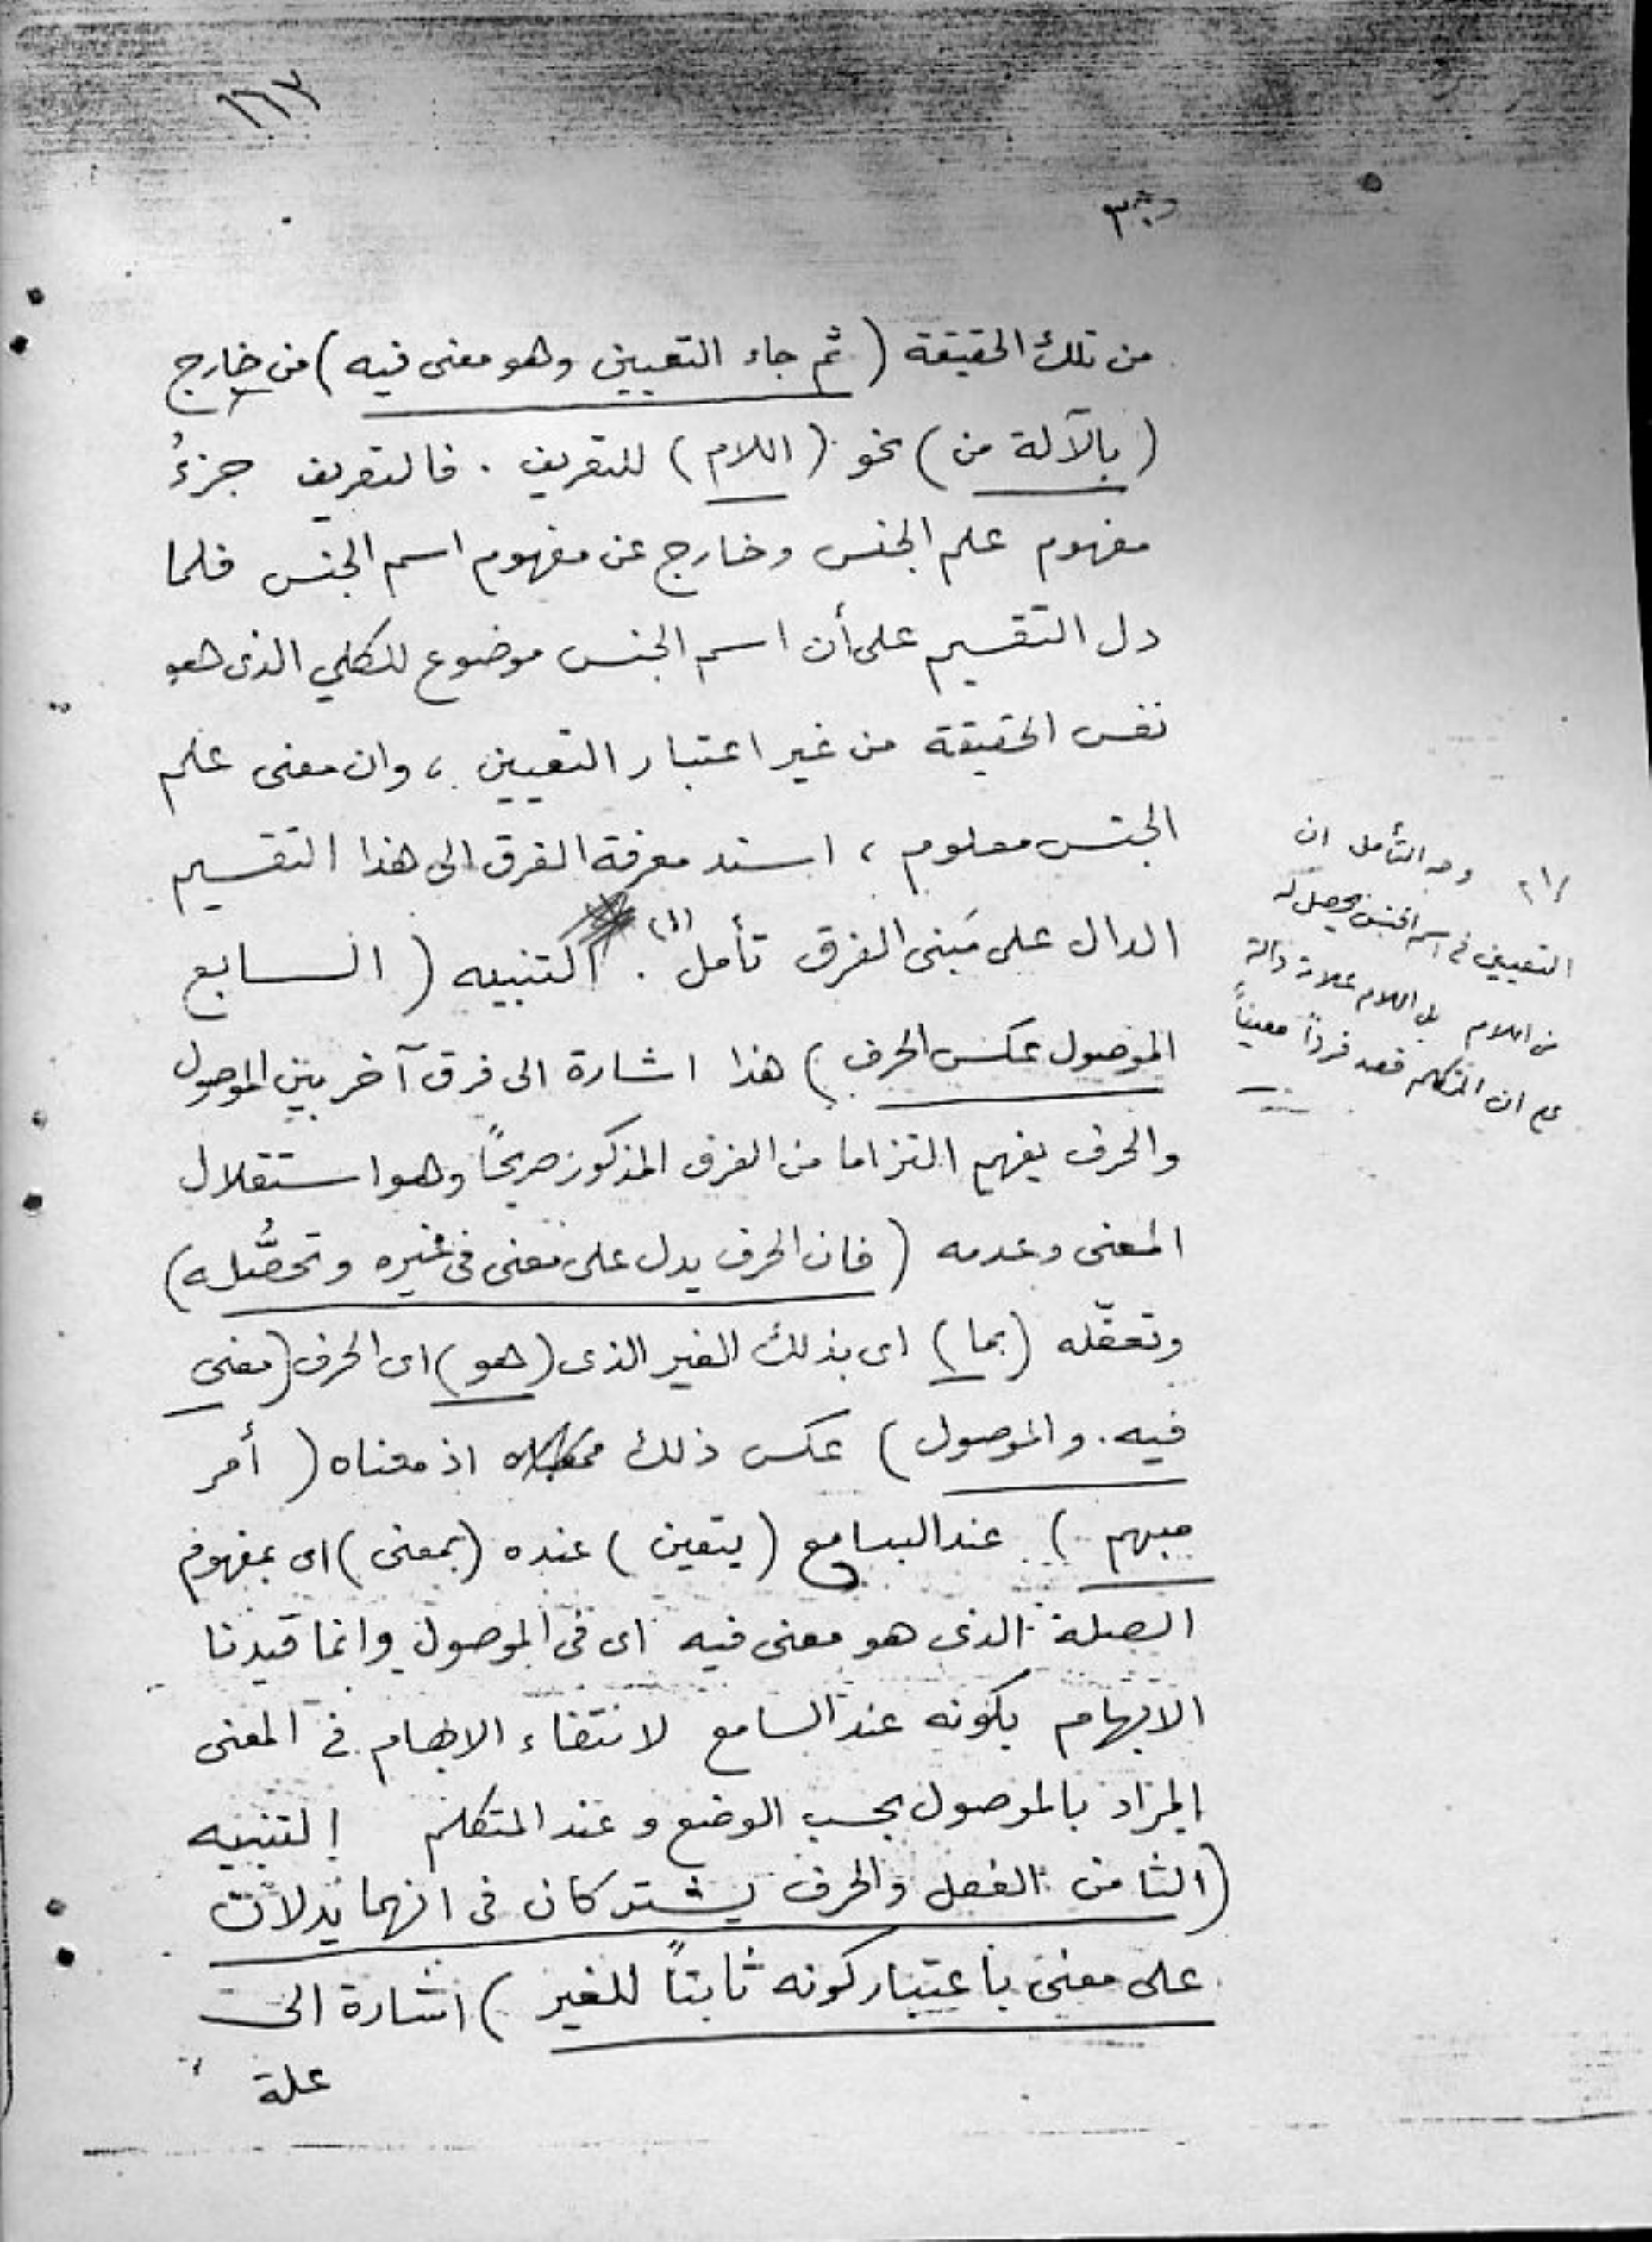 ١١٣
من تلك الحقيقة ( ثم جاء التعيين وهو معنى فيه ) من خارج
( بالآلة من ) نحو ( اللام ) للتعريف . فالتعريف جزءُ
مفهوم علم الجنس وخارج عن مفهوم اسم الجنس فلما
دل التقسيم على أن اسم الجنس موضوع للكلي الذى هو
نفس الحقيقة من غير اعتبار التعيين ، وان معنى علم
الجنس معلوم ، استند معرفة الفرق الى هذا التقسيم
الدال على مَبنى الفرق تأمل (١) . التنبيه ( السابع
الموصول عكس الحرف ) هذا اشارة الى فرق آخر بين الموصول
والحرف يفهم التزاما من الفرق المذكور صريحًا وهو استقلال
المعنى وعدمه ( فان الحرف يدل على معنى فى غيره وتحصُّله )
وتعقّله ( بما ) اى بذلك الغير الذى ( هو ) اى الحرف ( معنى
فيه . والموصول ) عكس ذلك اذ معناه ( أمر
مبهم ) عند السامع ( يتعين ) عنده ( بمعنى ) اى بمفهوم
الصلة الذى هو معنى فيه اى فى الموصول وانما قيدنا
الابهام بكونه عند السامع لانتفاء الابهام فى المعنى
المراد بالموصول بحسب الوضع وعند المتكلم التنبيه
( الثامن الفعل والحرف يشتركان فى انهما يدلان
على معنى باعتبار كونه ثابتاً للغير ) اشارة الى
علة
(١) وجه التأمل ان
التعيين فى اسم الجنس يحصل له
من اللام بل اللام علامة دالة
على ان المتكلم قصد فرداً معيناً